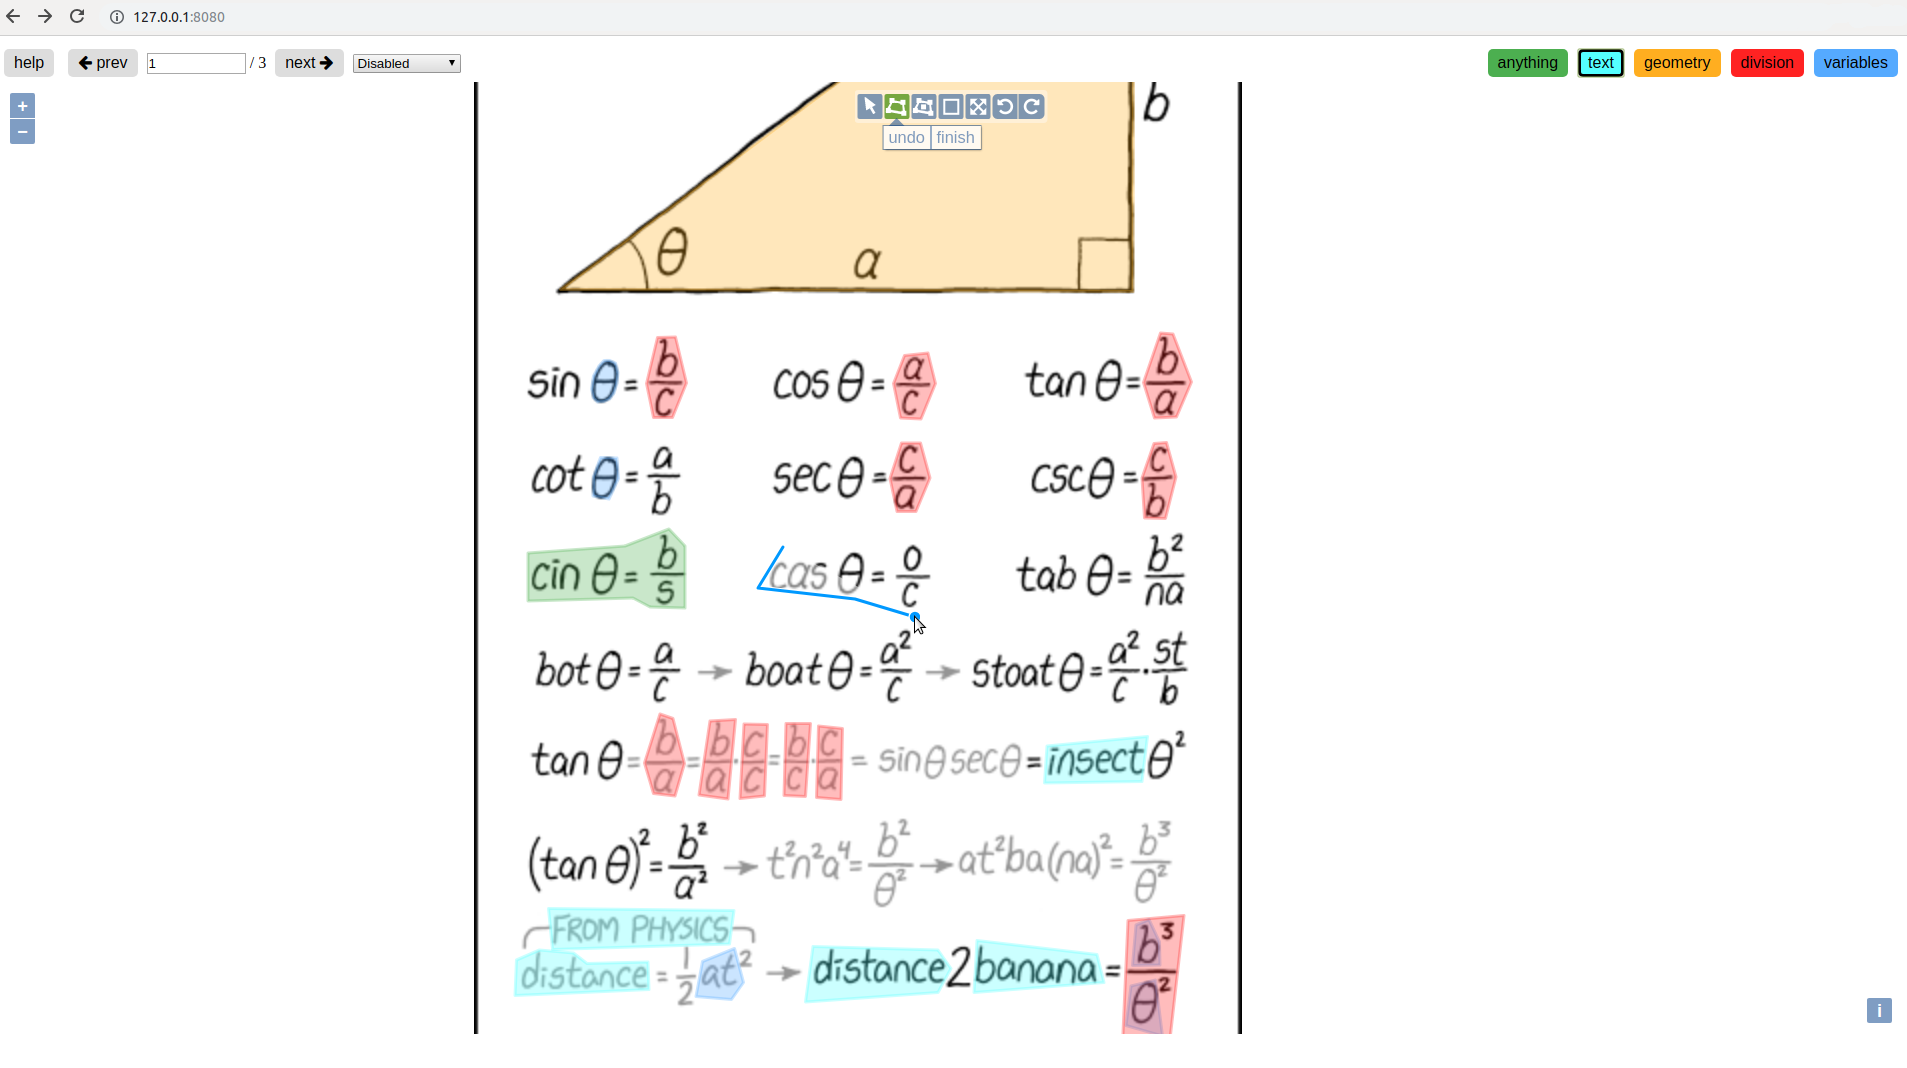 127.0.0.1:8080
help prev 1 / 3 next Disabled anything text geometry division variables
+
−
undo finish
b
θ a
sin θ = b/c cos θ = a/c tan θ = b/a
cot θ = a/b sec θ = c/a csc θ = c/b
cin θ = b/s cas θ = o/c tab θ = b²/na
bot θ = a/c → boat θ = a²/c → stoat θ = a²/c · st/b
tan θ = b/a = b/a · c/c = b/c · c/a = sin θ sec θ = insect θ²
(tan θ)² = b²/a² → t²n²a⁴ = b²/θ² → at²ba(na)² = b³/θ²
FROM PHYSICS
distance = 1/2 at² → distance2banana = b³/θ²
i